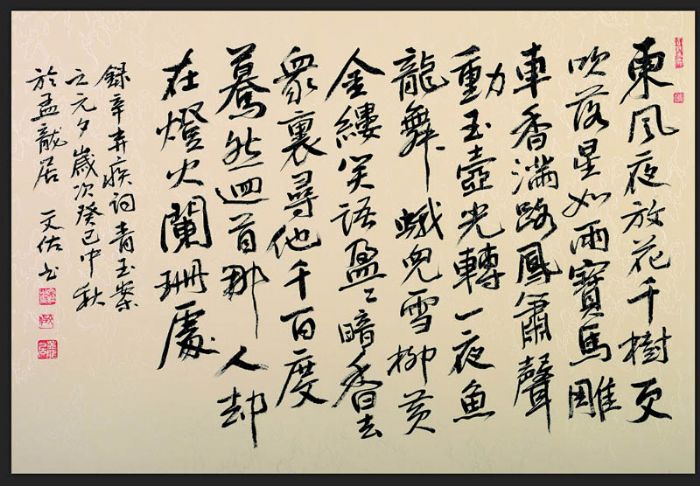 東风夜放花千樹更
吹落星如雨寶馬雕
車香滿路鳳簫聲
動玉壺光轉一夜魚
龍舞蛾兒雪柳黃
金縷笑語盈〻暗香去
衆裏尋他千百度
驀然迴首那人却
在燈火闌珊處
錄辛弃疾詞青玉案
之元夕歲次癸巳中秋
於孟龍居 文佑书